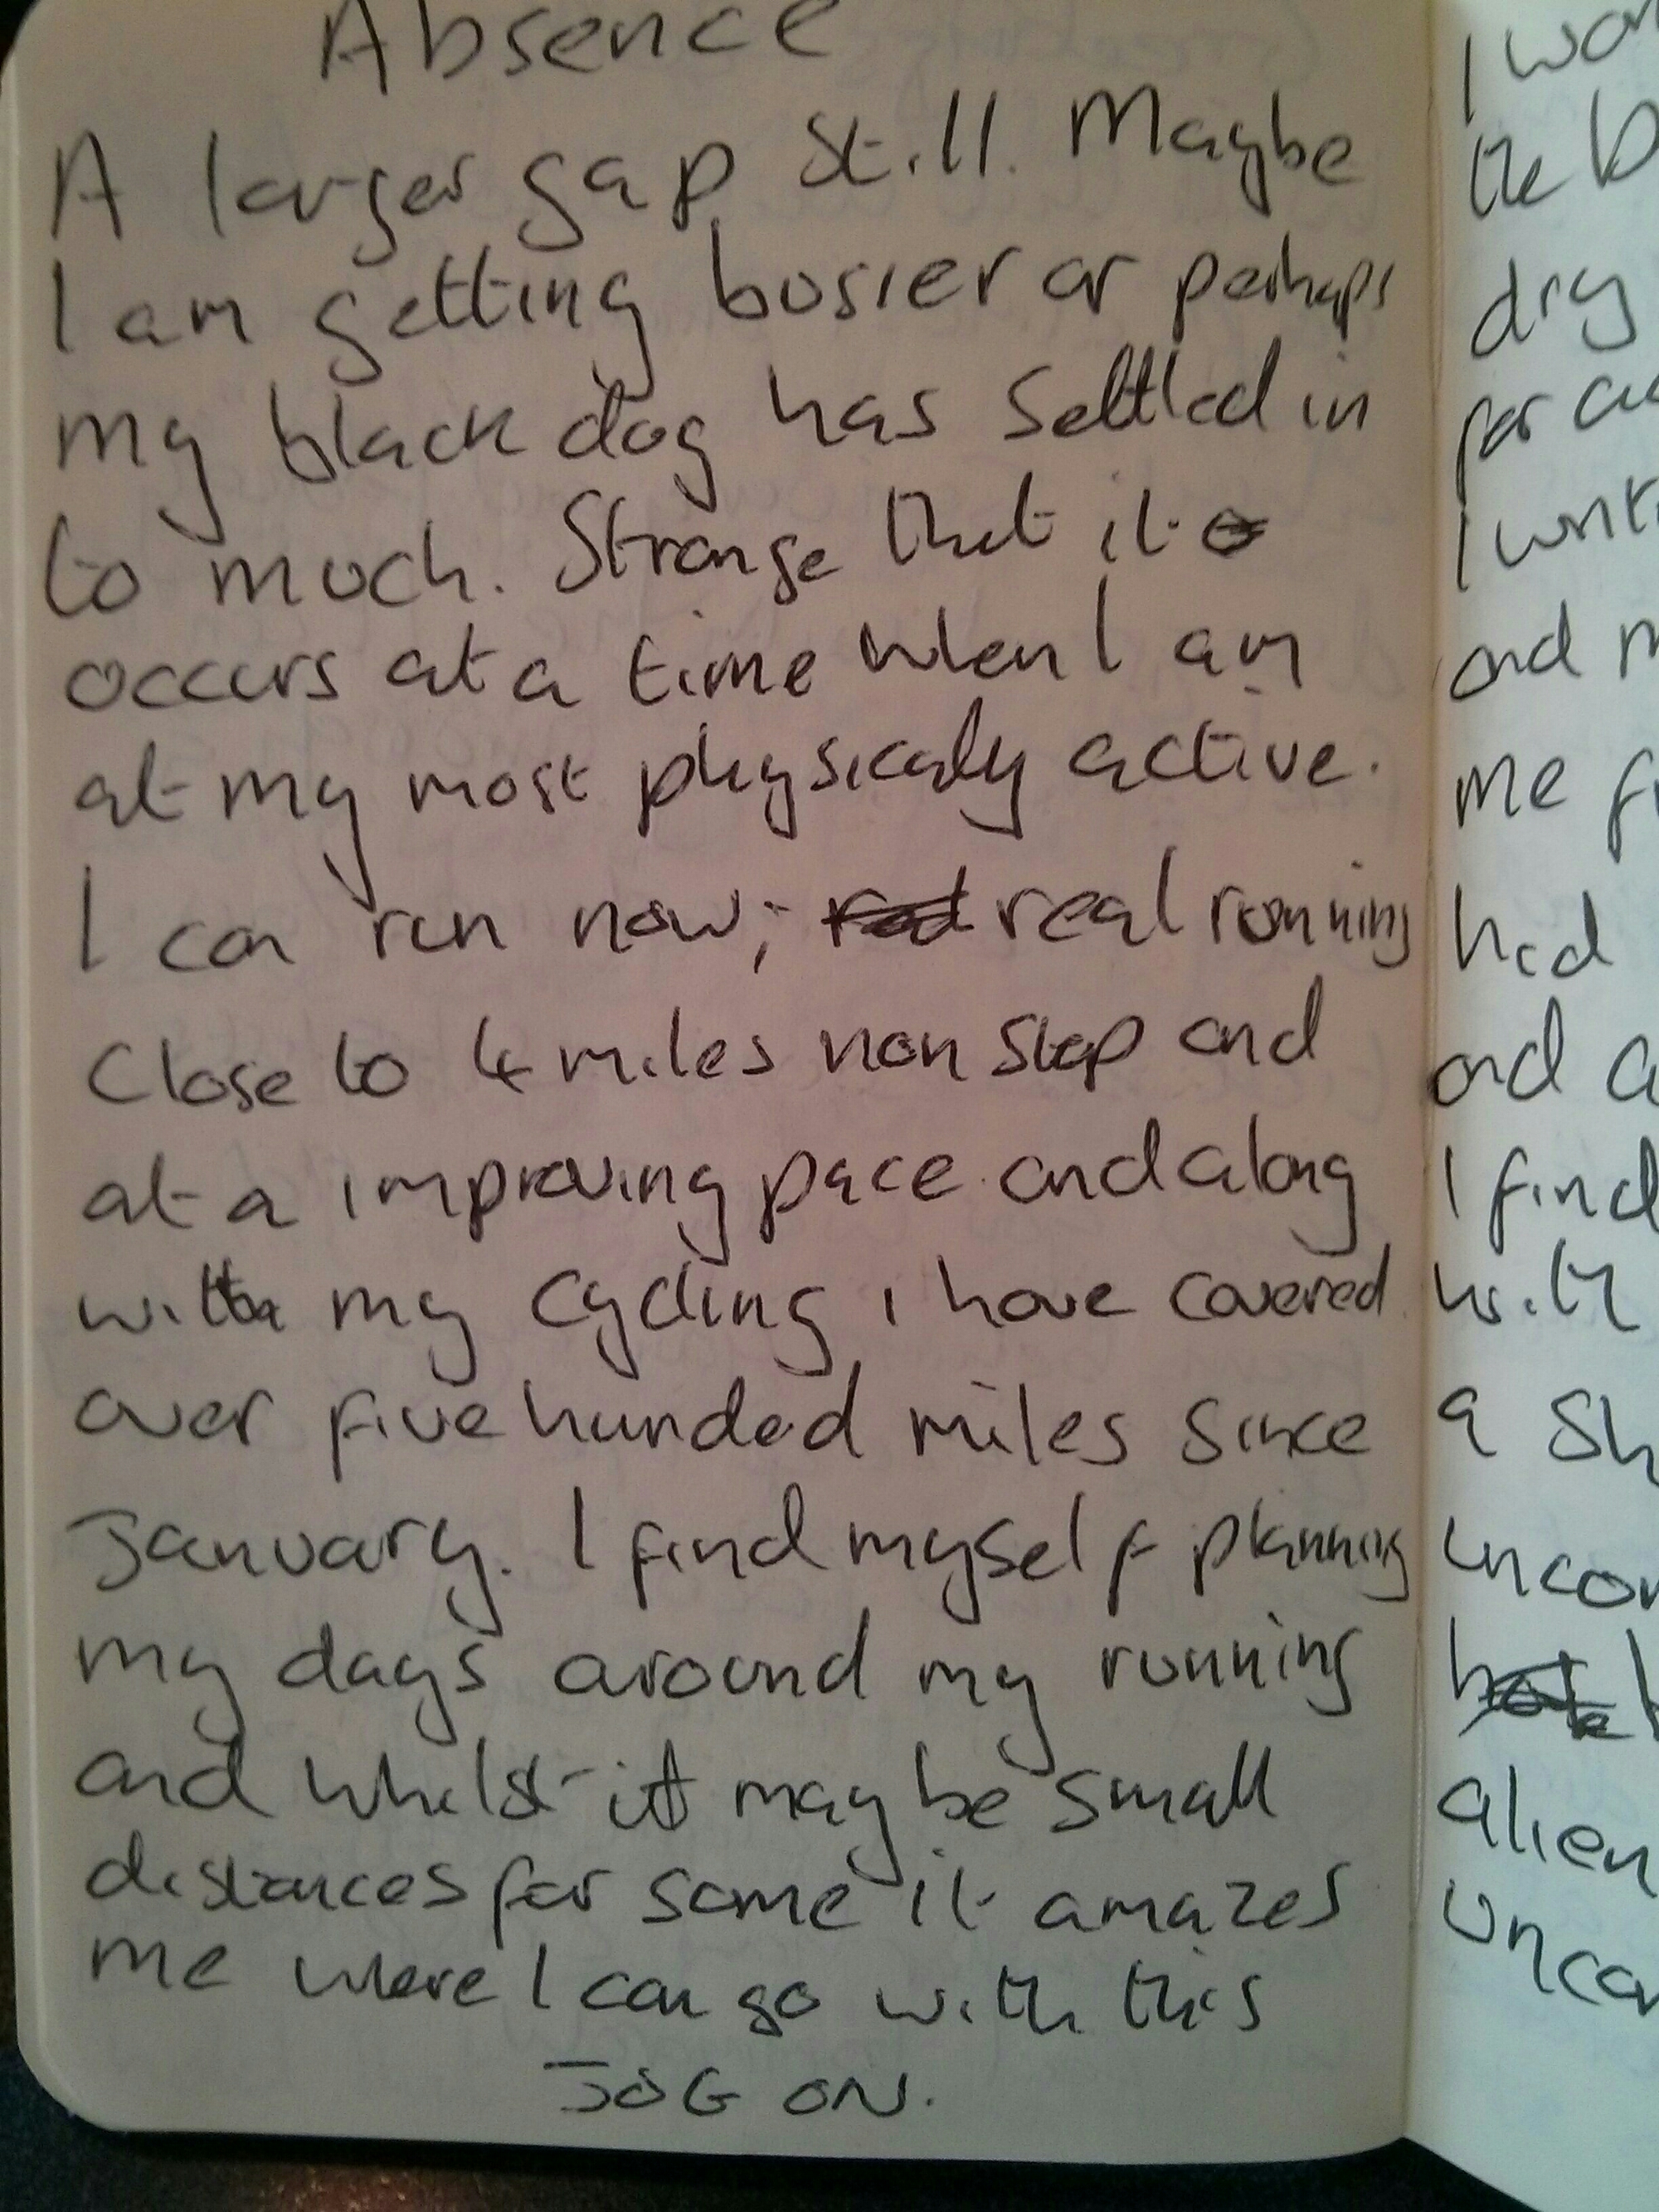 Absence
A larger gap still. Maybe
I am getting busier or perhaps
my black dog has settled in
to much. Strange that it
occurs at a time when I am
at my most physicaly active.
I can run now; real running
Close to 4 miles non stop and
at a improving pace and along
with my cycling i have covered
over five hunded miles since
January. I find myself planning
my days around my running
and whilst it may be small
distances for some it amazes
me where I can go with this
JOG ON.
I
the
dry
for
I
and
me
had
and
I find
with
a
alien